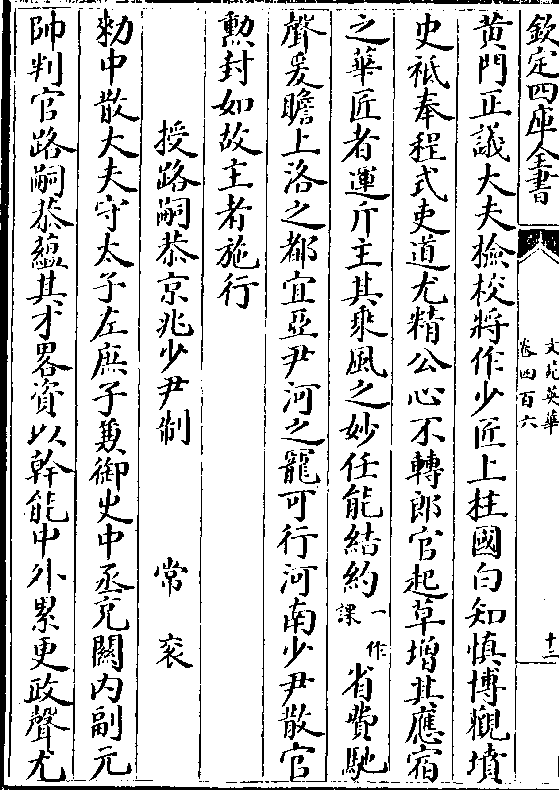 欽定四庫全書
文苑英華
卷四百六
十二
黄門正議大夫檢校將作少匠上柱國白知慎博觀墳
史祇奉程式吏道尤精公心不轉郎官起草增其應宿
之華匠者運斤主其乘風之妙任能結約一作課省費馳
聲爰瞻上洛之都宜亞尹河之寵可行河南少尹散官
勲封如故主者施行
授路嗣恭京兆少尹制 常衮
勅中散大夫守太子左庶子兼御史中丞充關内副元
帥判官路嗣恭蘊其才畧資以幹能中外累更政聲尤